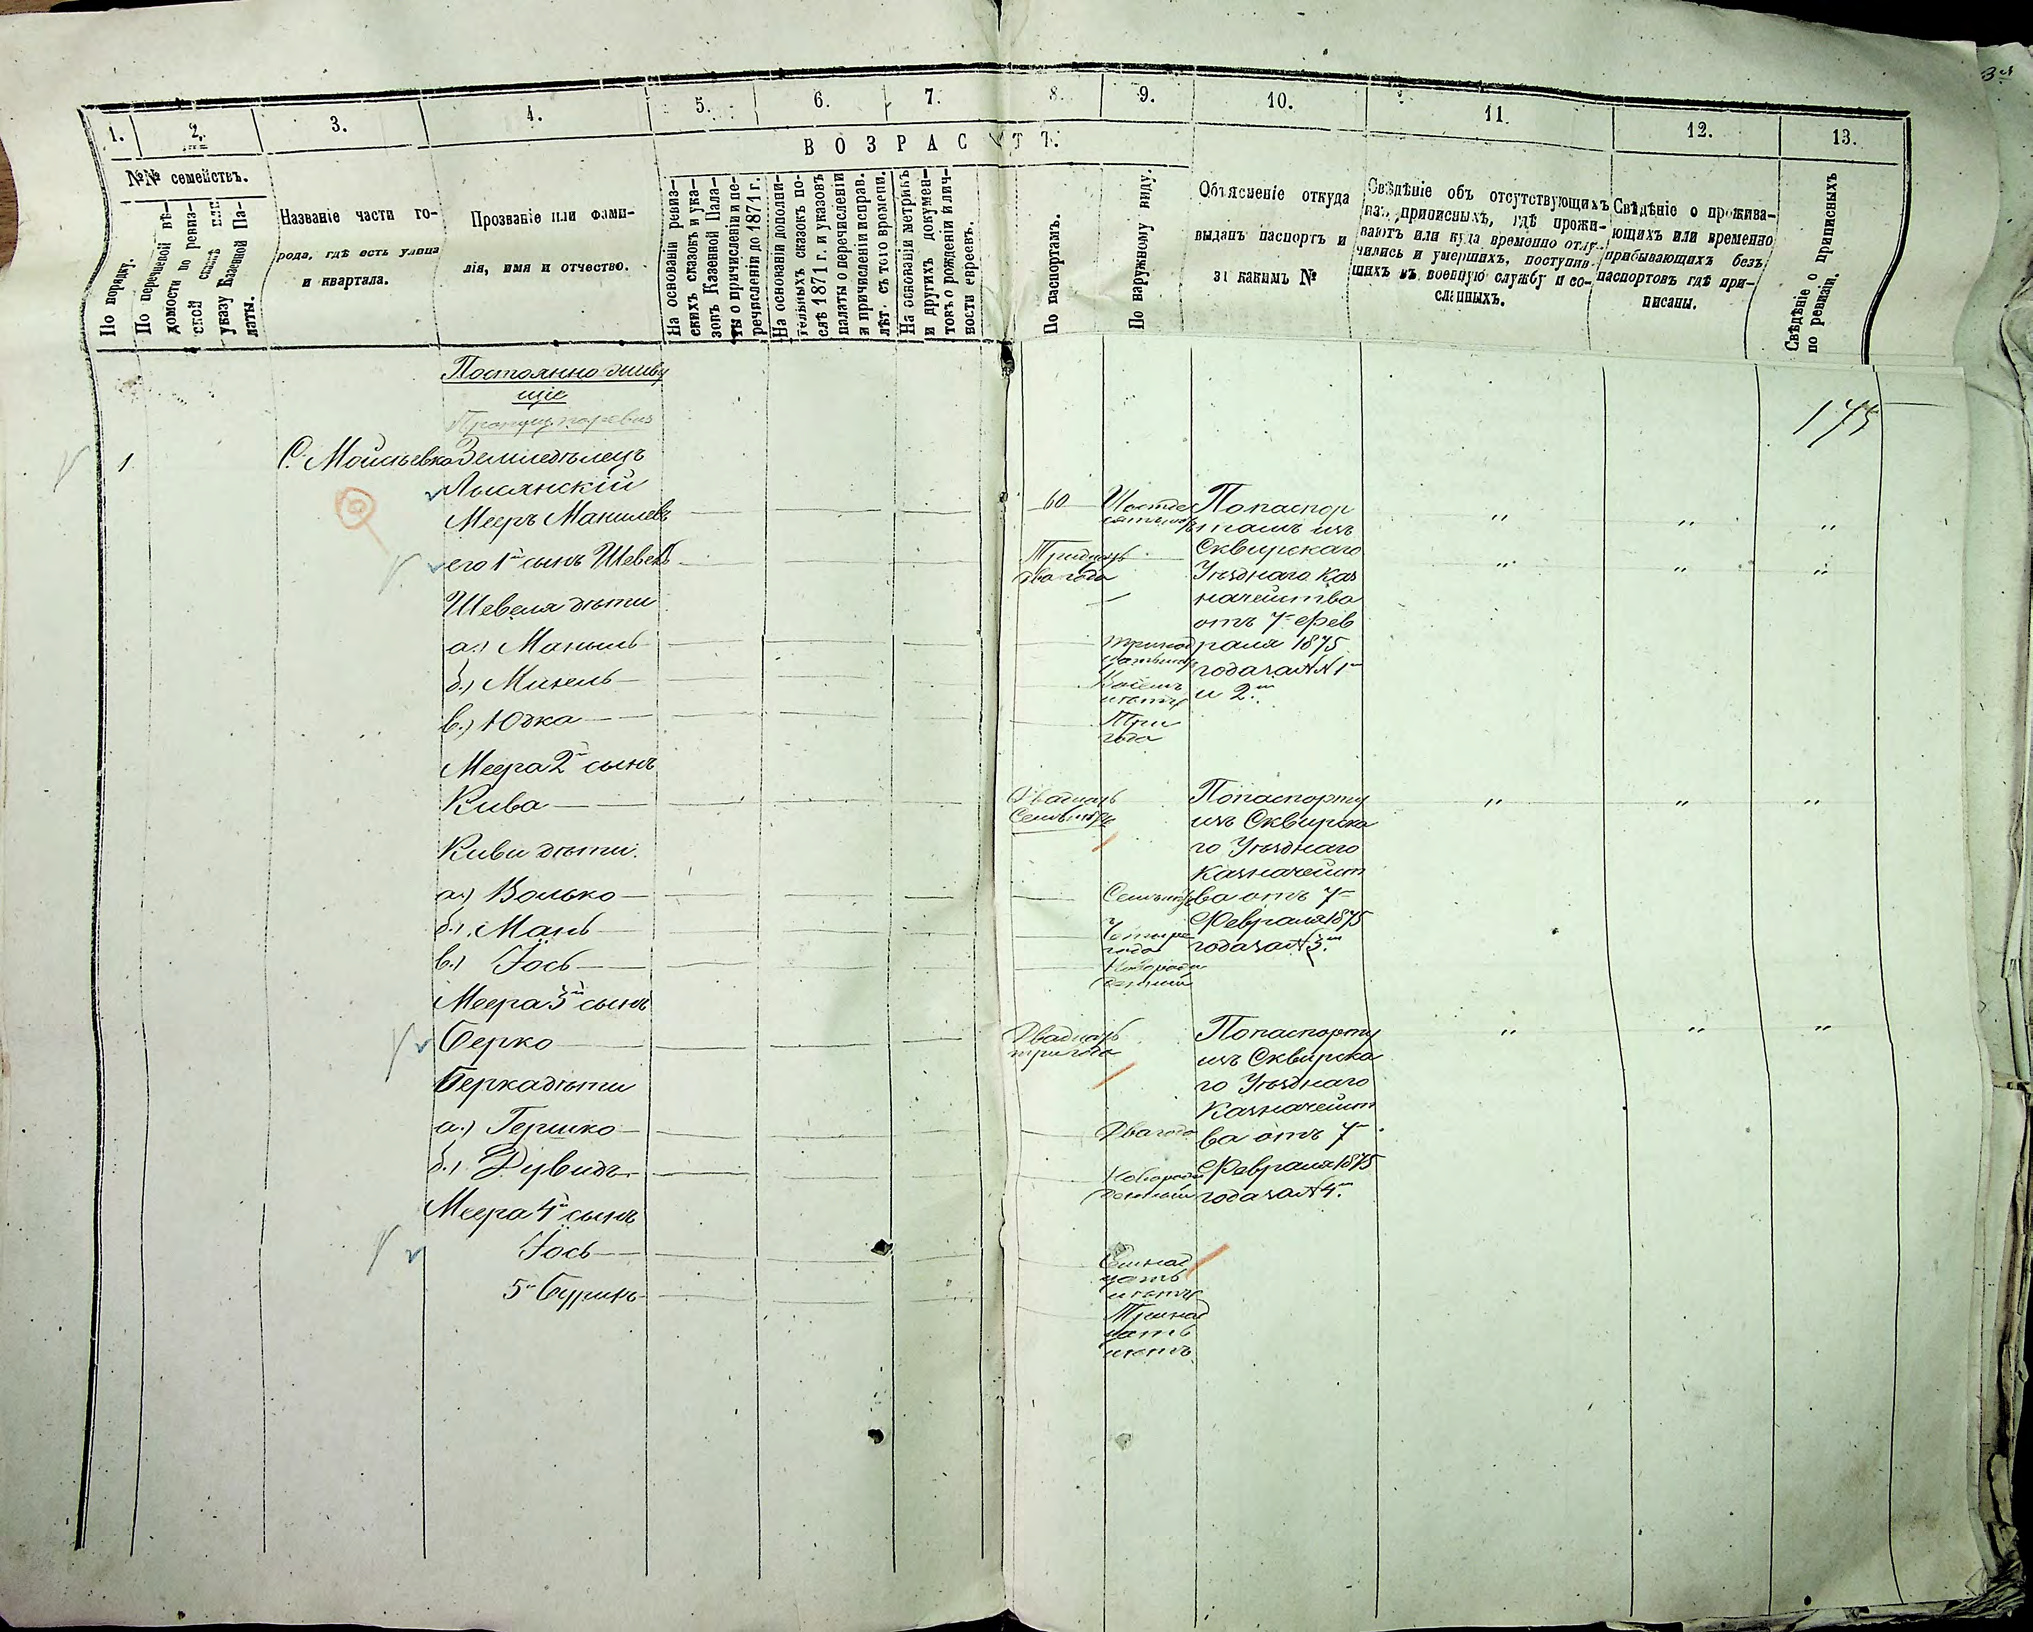 1. 2. 3. 4. 5. 6. 7. 8. 9. 10. 11. 12. 13.
ВОЗРАСТЪ.
№№ семействъ.
По порядку.
По перечневой вѣ-
домости по ревиз-
ской сказкѣ или
указу Казенной Па-
латы.
Названіе части го-
рода, гдѣ есть улица
и квартала.
Прозваніе или фами-
лія, имя и отчество.
На основаніи ревиз-
скихъ сказокъ и ука-
зовъ Казенной Пала-
ты о причисленіи и пе-
речисленіи до 1871 г.
На основаніи дополни-
тельныхъ сказокъ по-
слѣ 1871 г. и указовъ
палаты о перечисленіи
и причисленіи исправ.
лѣт. съ того времени.
На основаніи метрикъ
и другихъ докумен-
товъ о рожденіи и лич-
ности евреевъ.
По паспортамъ.
По наружному виду.
Объясненіе откуда
выданъ паспортъ и
за какимъ №
Свѣдѣніе объ отсутствующихъ
изъ приписныхъ, гдѣ прожи-
ваютъ или куда временно отлу-
чились и умершихъ, поступив-
шихъ въ военную службу и со-
сланныхъ.
Свѣдѣніе о прожива-
ющихъ или временно
прибывающихъ безъ
паспортовъ гдѣ при-
писаны.
Свѣдѣніе о приписныхъ
по ревизіи.
Постоянно живу
щіе
175
1 С. Мойсѣевка Земледѣлецъ
Лысянскій
Мееръ Маниловъ 60 Шостде
сятъ лѣтъ
его 1й сынъ Шевель Тридцать
два года
Попаспор
тамъ изъ
Сквирскаго
Уѣзднаго Каз
начейства
отъ 7 фев
раля 1875
года за №№ 1м
и 2м.
Шевеля дѣти
а.) Маниль Тринад
цать лѣтъ
б.) Михель Восемь
лѣтъ
в.) Юдка Три
года
Меера 2й сынъ
Кива Двадцать
Семь лѣтъ
Попаспорту
изъ Сквирска
го Уѣзднаго
Казначейст
ва отъ 7
Февраля 1875
года за № 3м.
Киви дѣти.
а.) Волько Семь лѣтъ
б.) Мань Четыре
года
в.) Іось Новорож
денный
Меера 3й сынъ
Берко Двадцать
три года
Попаспорту
изъ Сквирска
го Уѣзднаго
Казначейст
ва отъ 7
Февраля 1875
года за № 4м.
Берка дѣти
а.) Гершко Два года
б.) Дувидъ Новорож
денный
Меера 4й сынъ
Іось Семнад
цать
лѣтъ
5й Бурихъ Тринад
цать
лѣтъ